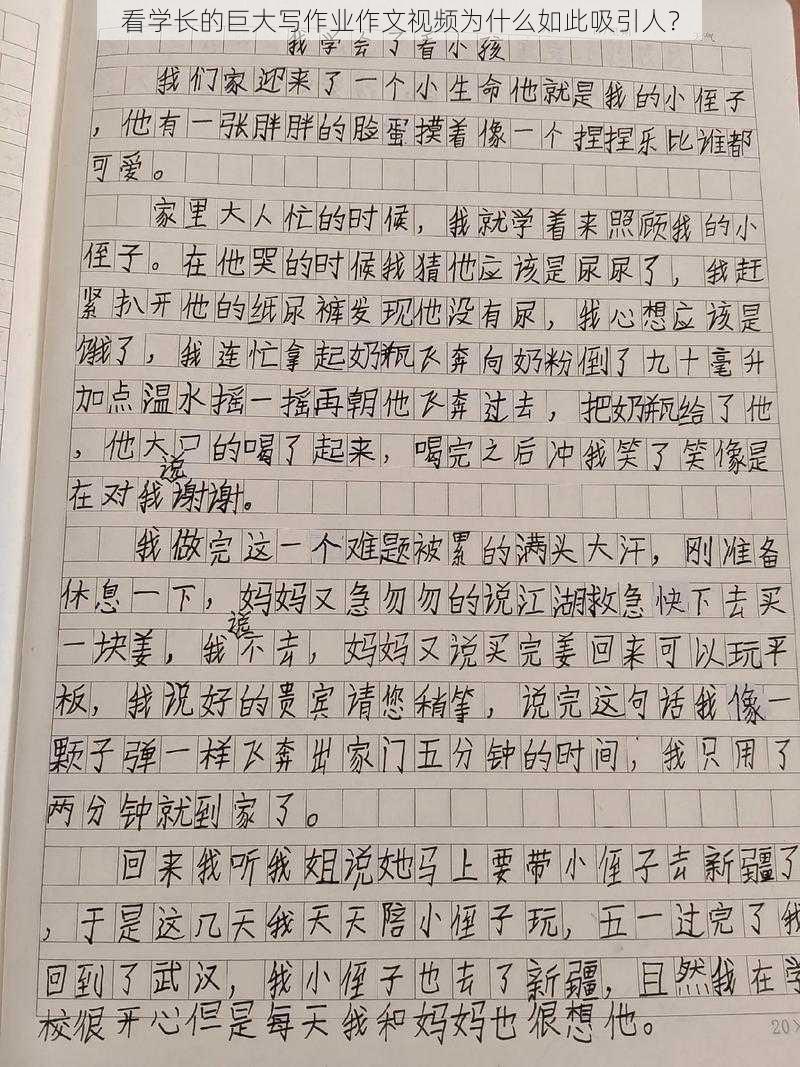 看学长的巨大写作业作文视频为什么如此吸引人？
我学会了看小孩
我们家迎来了一个小生命他就是我的小侄子
，他有一张胖胖的脸蛋摸着像一个捏捏乐比谁都
可爱。
家里大人忙的时候，我就学着来照顾我的小
侄子。在他哭的时候我猜他应该是尿尿了，我赶
紧扒开他的纸尿裤发现他没有尿，我心想应该是
饿了，我连忙拿起奶瓶飞奔向奶粉倒了九十毫升
加点温水摇一摇再朝他飞奔过去，把奶瓶给了他
，他大口的喝了起来，喝完之后冲我笑了笑像是
在对我说谢谢。
我做完这一个难题被累的满头大汗，刚准备
休息一下，妈妈又急勿勿的说江湖救急快下去买
一块姜，我说不去，妈妈又说买完姜回来可以玩平
板，我说好的贵宾请您稍等，说完这句话我像一
颗子弹一样飞奔出家门五分钟的时间，我只用了
两分钟就到家了。
回来我听我姐说她马上要带小侄子去新疆了
，于是这几天我天天陪小侄子玩，五一过完了我
回到了武汉，我小侄子也去了新疆，且然我在学
校很开心但是每天我和妈妈也很想他。
20×